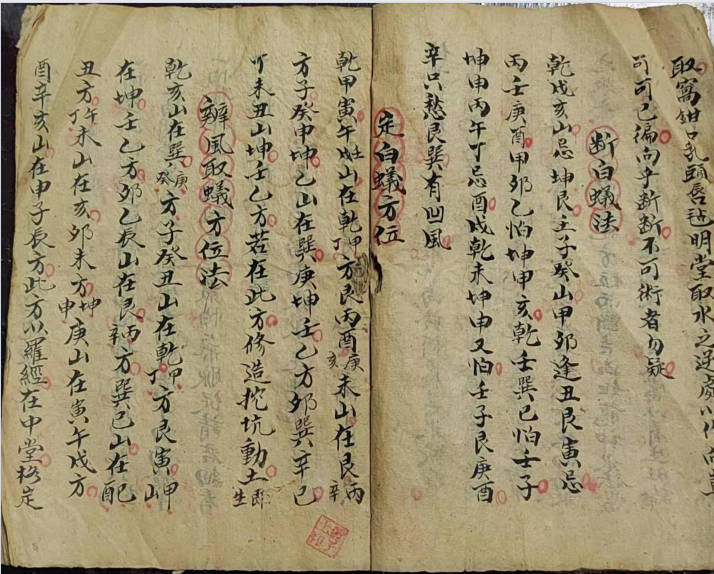 取窩鉗口乳頭唇毡明堂取水之逆處以作向
可可已偏向乎断断不可術者勿疑
断白蟻法
乾戌亥山忌坤艮壬子癸山甲卯逢丑艮寅忌
丙壬庚酉甲卯乙怕坤甲亥乾壬巽巳怕壬子
坤申丙午丁忌酉戌乾未坤申又怕壬子艮庚酉
辛只愁艮巽有凹風
定白蟻方位
乾甲寅午山在乾甲丁方艮丙酉庚亥未山在艮丙辛
方子癸申坤乙山在巽庚坤壬乙方卯巽辛巳
丁未丑山坤壬乙方若在此方修造挖坑動土即生
辨風取蟻方位法
乾亥山在巽庚癸方子癸丑山在乾甲丁方艮寅甲山
在坤壬乙方卯乙辰山在艮丙辛方巽巳山在
丑方丁午未山在亥卯未方坤申庚山在寅午戌方
酉辛亥山在申子辰方此方以羅經在中堂格定